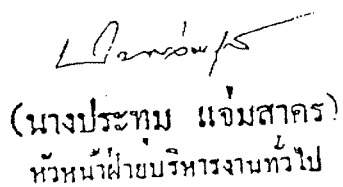 (นางประทุม แจ่มสาคร)
หัวหน้าฝ่ายบริหารงานทั่วไป